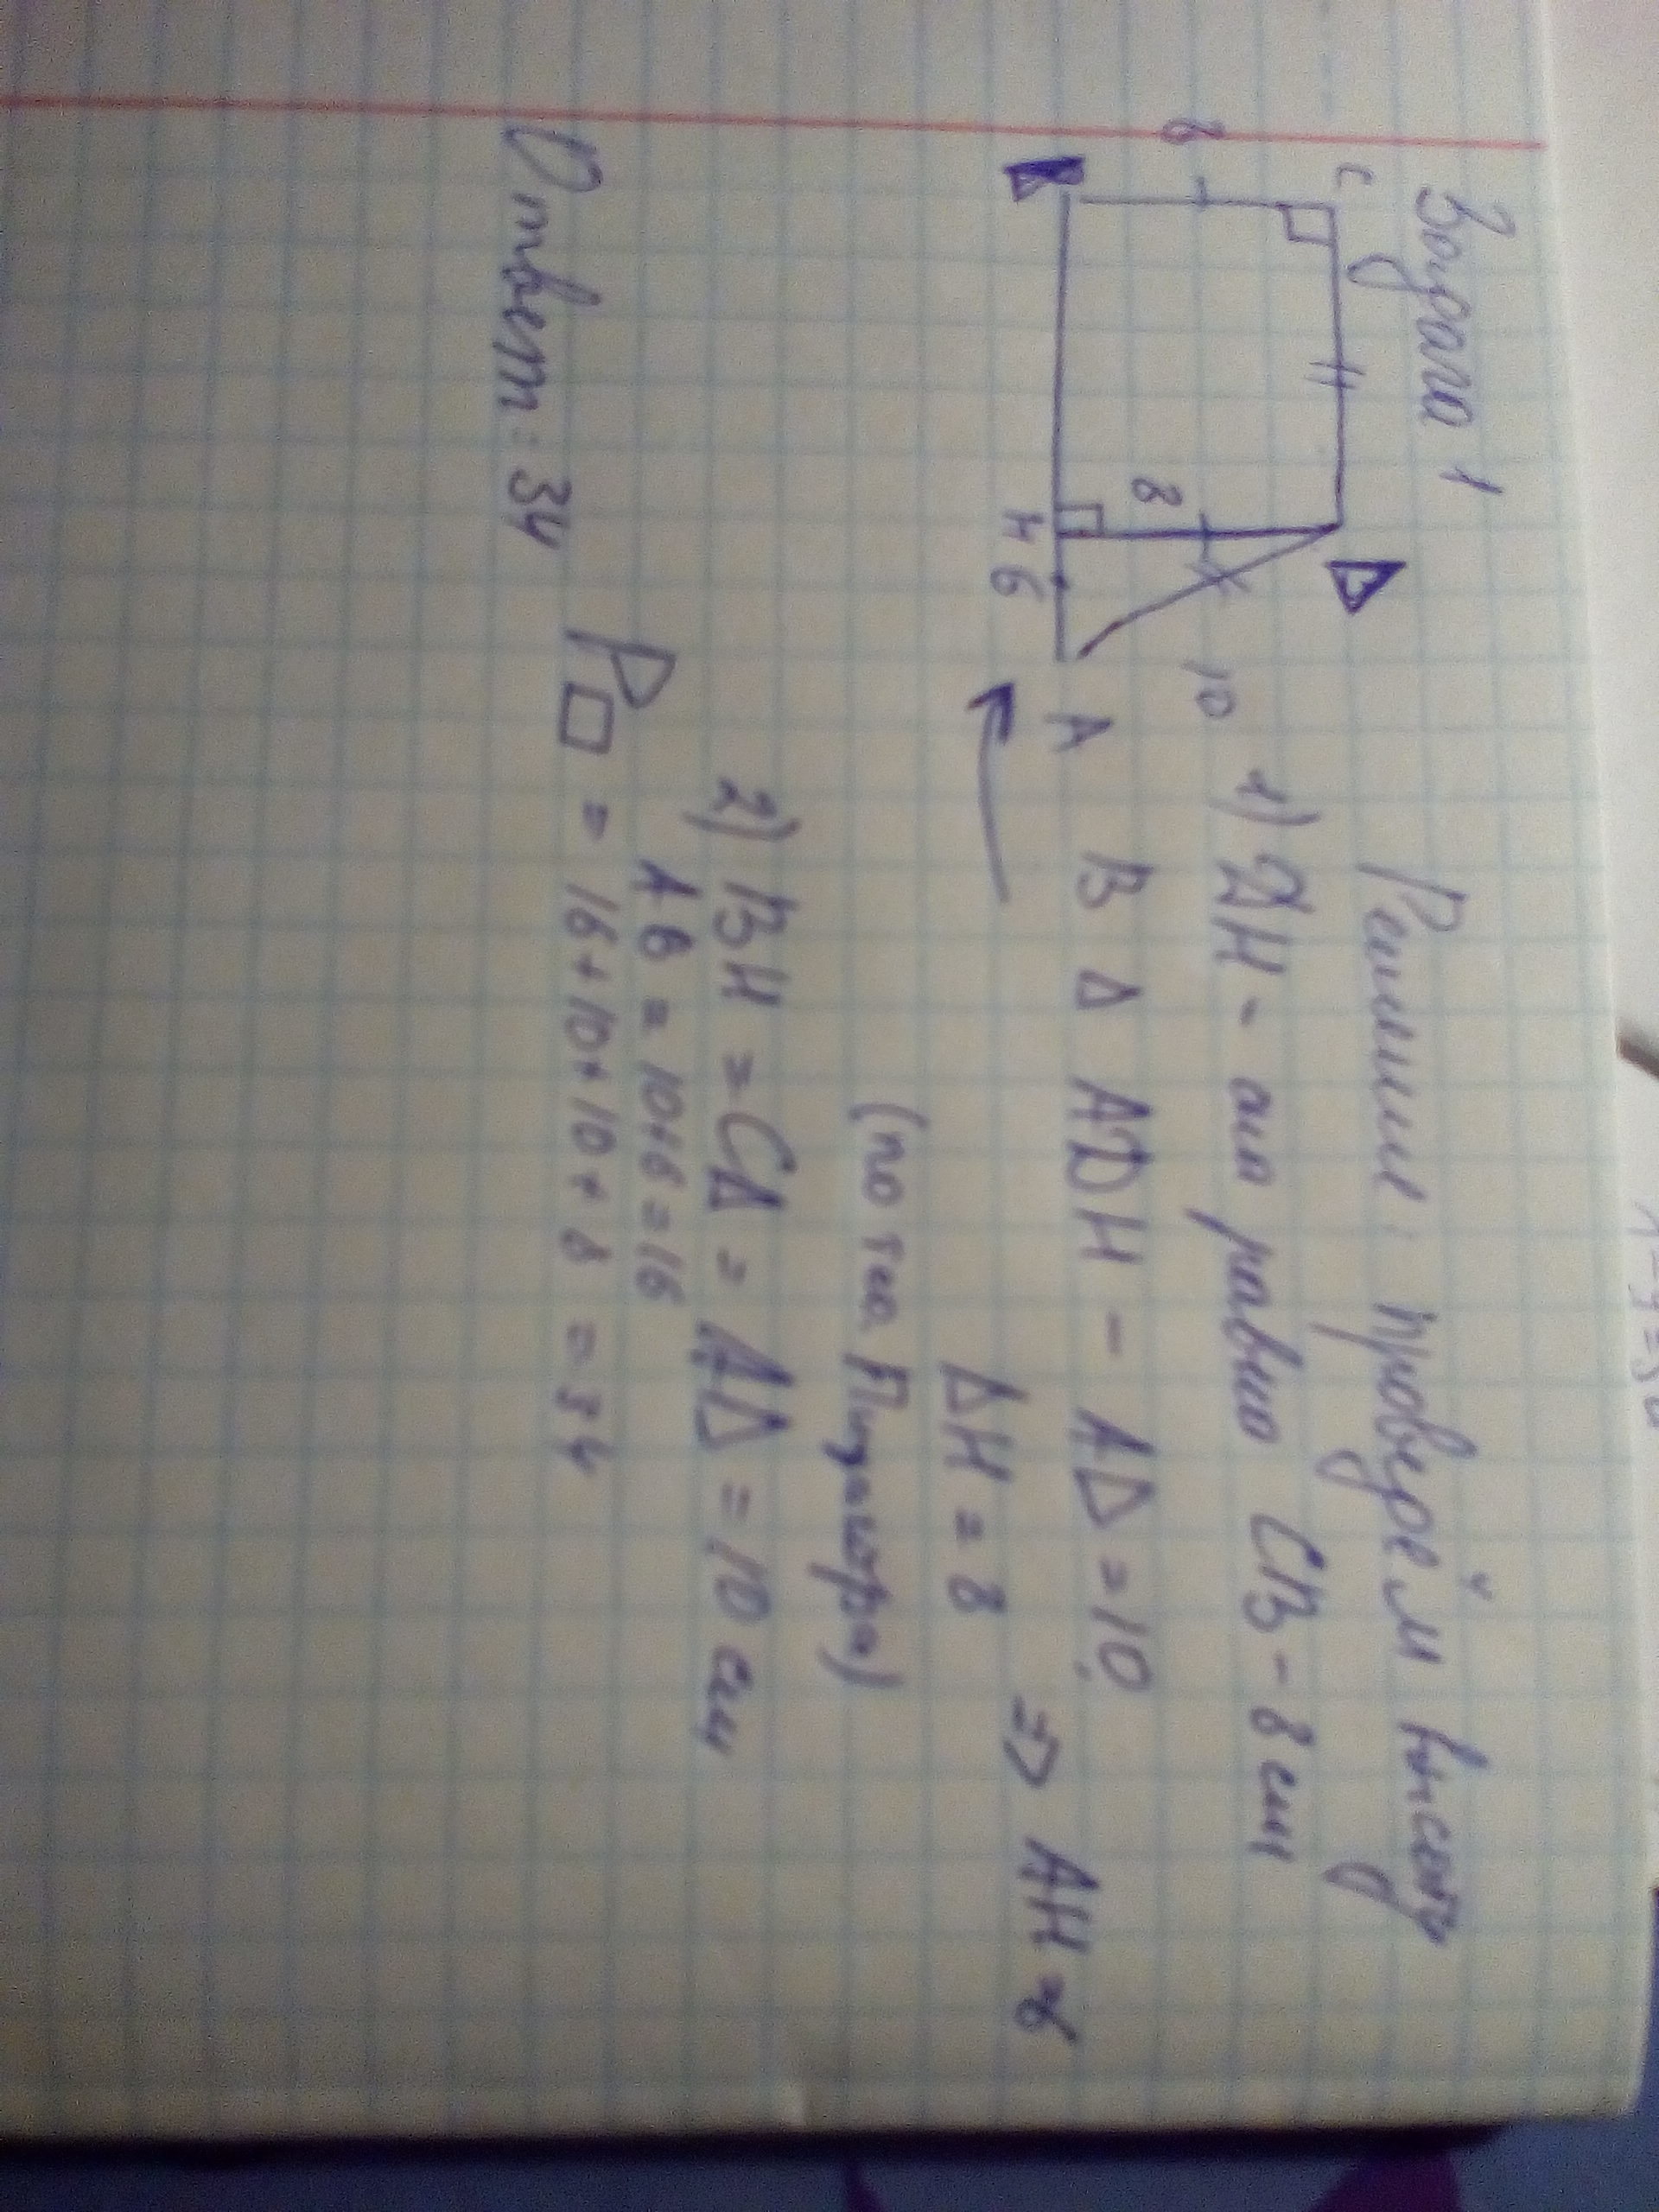 Задача 1
C
D
8
8
10
B
H
6
A
Решение: проведём высоту
1) DH - она равна CB - 8 см
В Δ ADH - AD = 10
ΔH = 8
⇒ AH = 6
(по тео Пифагора)
2) BH = CΔ = AΔ = 10 см
AB = 10+6=16
P□ = 16+10+10+8 = 34
Ответ: 34